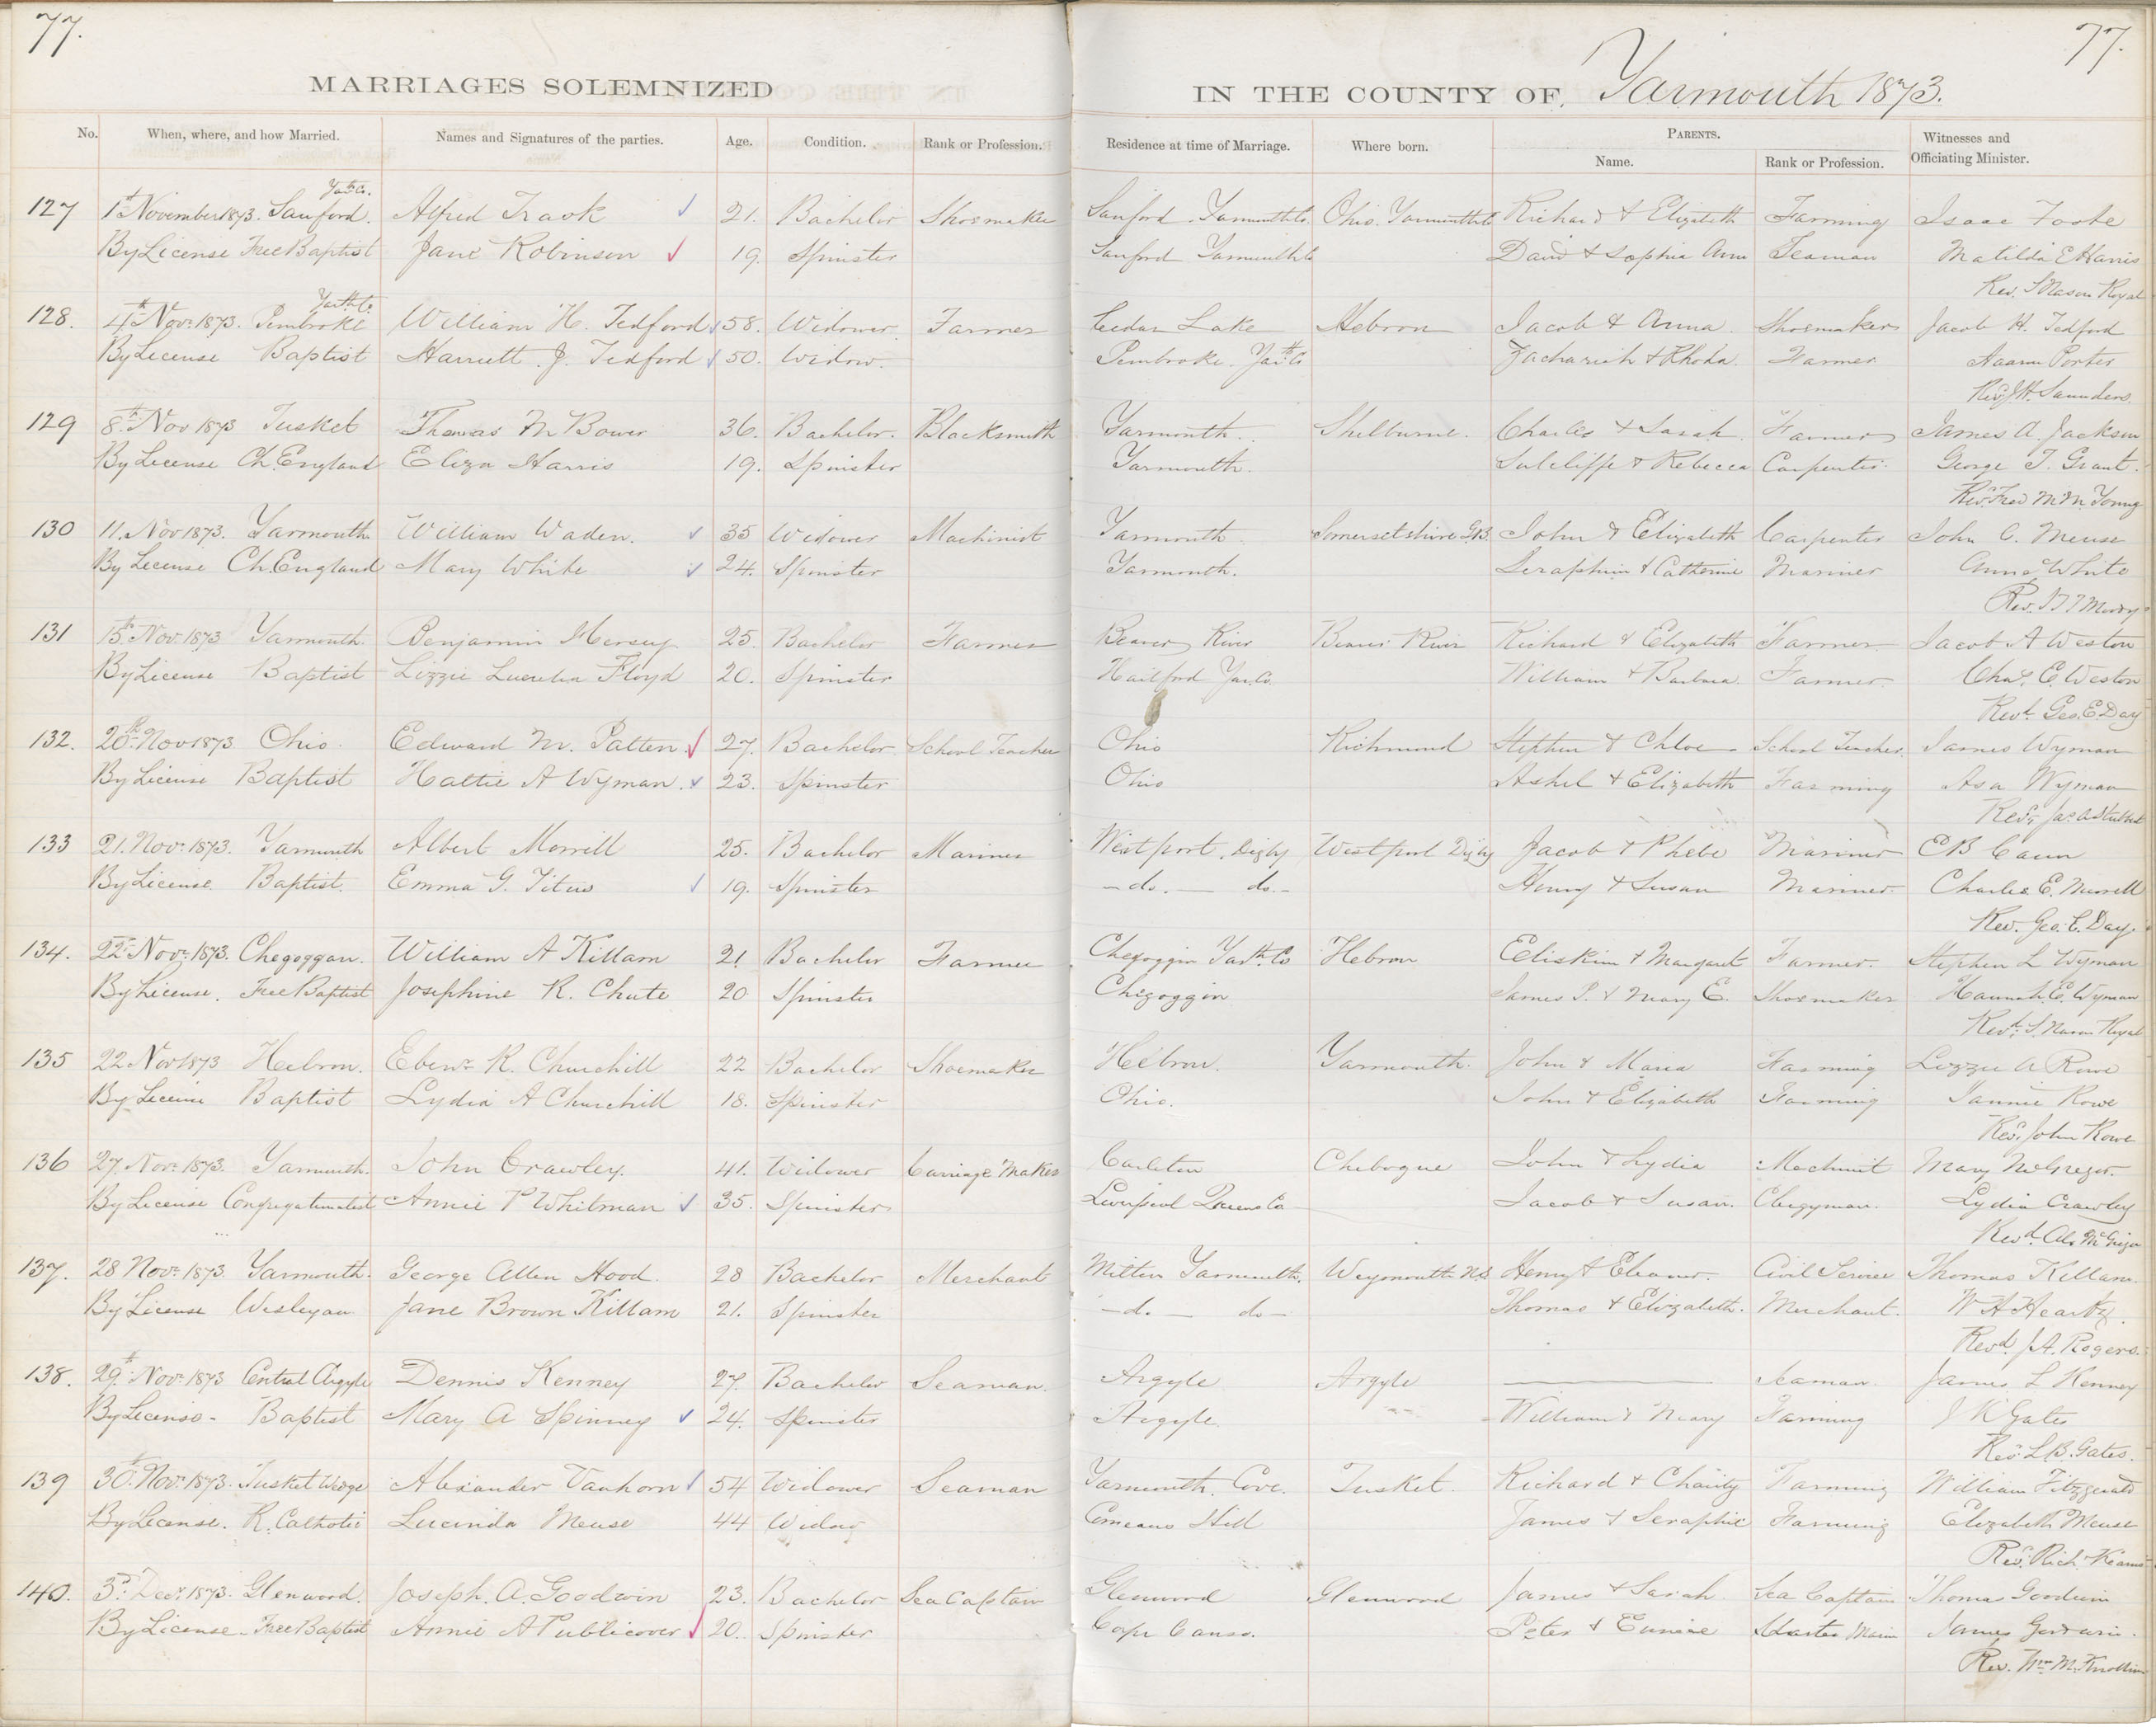 77.
77.
MARRIAGES SOLEMNIZED IN THE COUNTY OF Yarmouth 1873.
No. When, where, and how Married. Names and Signatures of the parties. Age. Condition. Rank or Profession. Residence at time of Marriage. Where born. PARENTS. Name. Rank or Profession. Witnesses and Officiating Minister.
Yarth Co.
127 1st November 1873. Sanford. Alfred Trask 21. Bachelor Shoemaker Sanford. Yarmouth Co. Ohio. Yarmouth Co Richard & Elizabeth Farming Isaac Foote
By License Free Baptist Jane Robinson 19. Spinster Sanford Yarmouth Co David & Sophia Ann Seaman Matilda E Harris
Rev. S Mason Royal
Yarth Co.
128. 4th Novr 1873. Pembroke William H. Tedford 58. Widower Farmer Cedar Lake Hebron Jacob & Anna Shoemaker Jacob H. Tedford
By License Baptist Harriett J. Tedford 50. Widow. Pembroke. Yarth Co Zachariah & Rhoda. Farmer Aaron Porter
Revd J H. Saunders.
129 8th Nov 1873 Tusket Thomas M Bower 36. Bachelor. Blacksmith Yarmouth. Shelburne. Charles & Sarah. Farmer James A. Jackson
By License Ch. England Eliza Harris 19. Spinster Yarmouth. Sutcliffe & Rebecca Carpenter George T. Grant.
Rev. Fred M. M. Young
130 11. Nov 1873. Yarmouth William Waden. 35 Widower Machinist Yarmouth. Somersetshire G.B. John & Elizabeth Carpenter John C. Meuse
By License Ch. England Mary White 24. Spinster Yarmouth. Seraphim & Catherine Mariner Anna White
Rev. Moody
131 15th Nov. 1873 Yarmouth. Benjamin Hersey 25. Bachelor Farmer Beaver River Beaver River Richard & Elizabeth Farmer Jacob A Weston
By License Baptist Lizzie Luerelia Floyd 20. Spinster Hartford Yar. Co. William & Barbara. Farmer. Chas. E. Weston
Revd. Geo. E. Day
132. 20th Nov 1873. Ohio. Edward M. Patten 27. Bachelor School Teacher Ohio Richmond Stephen & Chloe School Teacher. James Wyman
By License Baptist Hattie A Wyman. 23. Spinster Ohio Ashel & Elizabeth Farming Asa Wyman
Revd. Jas. A Stubbert
133 21. Novr 1873. Yarmouth Albert Morrill 25. Bachelor Mariner Westport, Digby Westport Digby Jacob & Phebe Mariner E B Cann
By License. Baptist. Emma G. Titus 19. Spinster —do.— do.- Henry & Susan Mariner. Charles E. Murrell
Rev. Geo. E. Day.
134. 22nd Novr 1873. Chegoggan. William A Killam 21 Bachelor Farmer Chegoggin Yarth. Co Hebron Eliakim & Margaret Farmer. Stephen L Wyman
By License. Free Baptist Josephine R. Chute 20 Spinster Chegoggin James P. & Mary E. Shoemaker Hannah E. Wyman
Revd. S. Mason Royal
135 22 Nov 1873 Hebron. Ebenr. R. Churchill 22 Bachelor Shoemaker Hebron. Yarmouth. John & Maria Farming Lizzie A Rowe
By License Baptist Lydia A Churchill 18. Spinster Ohio. John & Elizabeth Farming Fannie Rowe
Revd. John Rowe
136 27. Novr 1873. Yarmouth. John Crawley. 41. Widower Carriage Maker Carleton Chebogue John & Lydia Mechanic Mary McGregor.
By License Congregationalist Annie P Whitman 35. Spinster Liverpool Queens Co Jacob & Susan. Clergyman. Lydia Crawley
Revd. Alx McGregor
137. 28 Novr 1873. Yarmouth. George Allen Hood. 28 Bachelor Merchant Milton Yarmouth. Weymouth N.S. Henry & Eleanor. Civil Service Thomas Killam.
By License Wesleyan Jane Brown Killam 21. Spinster —do— do— Thomas & Elizabeth. Merchant. W H Heartz.
Revd. J A. Rogers.
138. 29th Novr 1873 Central Argyle Dennis Kenney 27. Bachelor Seaman. Argyle Argyle ——— Seaman. James L Kenney
By License- Baptist Mary A Spinney 24. Spinster Argyle. William & Mary Farming J K Gates
Rev. L. B. Gates.
139 30th Novr 1873. Tusket Wedge Alexander Vanhorn 54 Widower Seaman Yarmouth. Cove. Tusket. Richard & Charity Farming William Fitzgerald
By License. R. Catholic Lucinda Meuse 44 Widow Comeaus Hill James & Seraphie Farming Elizabeth Meuse
Revd. Rich. Kearns
140. 3rd Decr 1873. Glenwood. Joseph. A. Goodwin 23. Bachelor Sea Captain Glenwood Glenwood James & Sarah. Sea Captain Thomas Goodwin
By License. Free Baptist Annie A Publicover 20. Spinster Cape Canso. Peter & Eunice Master James Goodwin.
Rev. Wm. M. Knollin